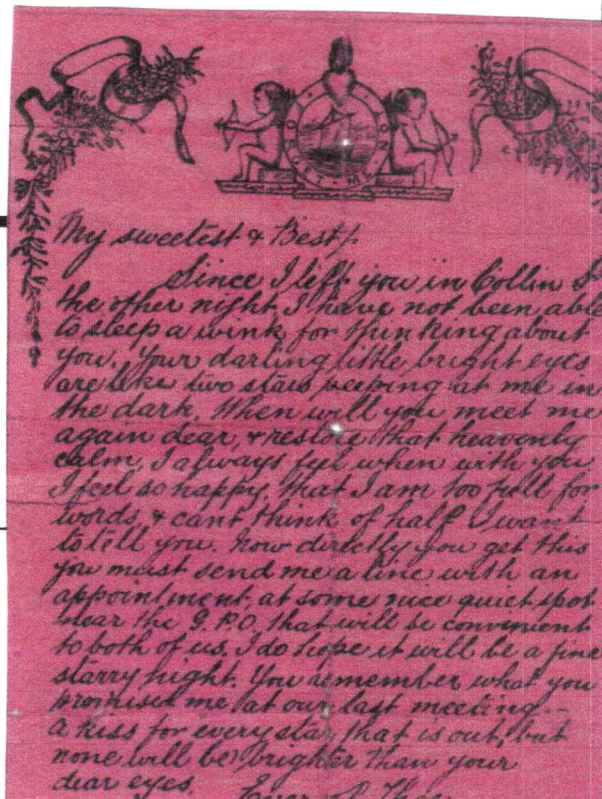 My sweetest & Best/.
Since I left you in Collin S
the other night I have not been able
to sleep a wink for thinking about
you. Your darling little bright eyes
are like two stars peeping at me in
the dark. When will you meet me
again dear, & restore that heavenly
calm, I always feel when with you.
I feel so happy, that I am too full for
words, & cant think of half I want
to tell you. Now directly you get this
you must send me a line with an
appointment, at some nice quiet spot
near the G.P.O. that will be convenient
to both of us. I do hope it will be a fine
starry night. You remember what you
promised me at our last meeting—
a kiss for every star that is out, but
none will be brighter than your
dear eyes.